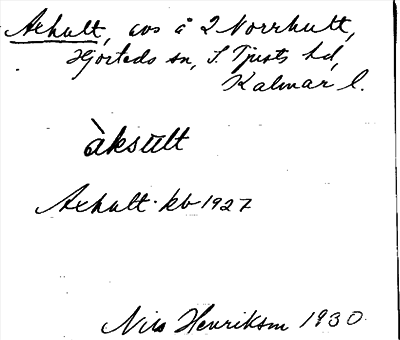 Axhult, avs å 2 Norrhult,
Hjorteds sn, S. Tjusts hd,
Kalmar l.
àksult
Axhult · kb 1927
Nils Henriksson 1930